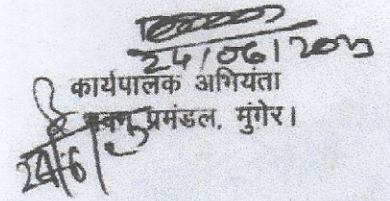 24/06/20
कार्यपालक अभियंता
भवन प्रमंडल, मुंगेर।
24/6/